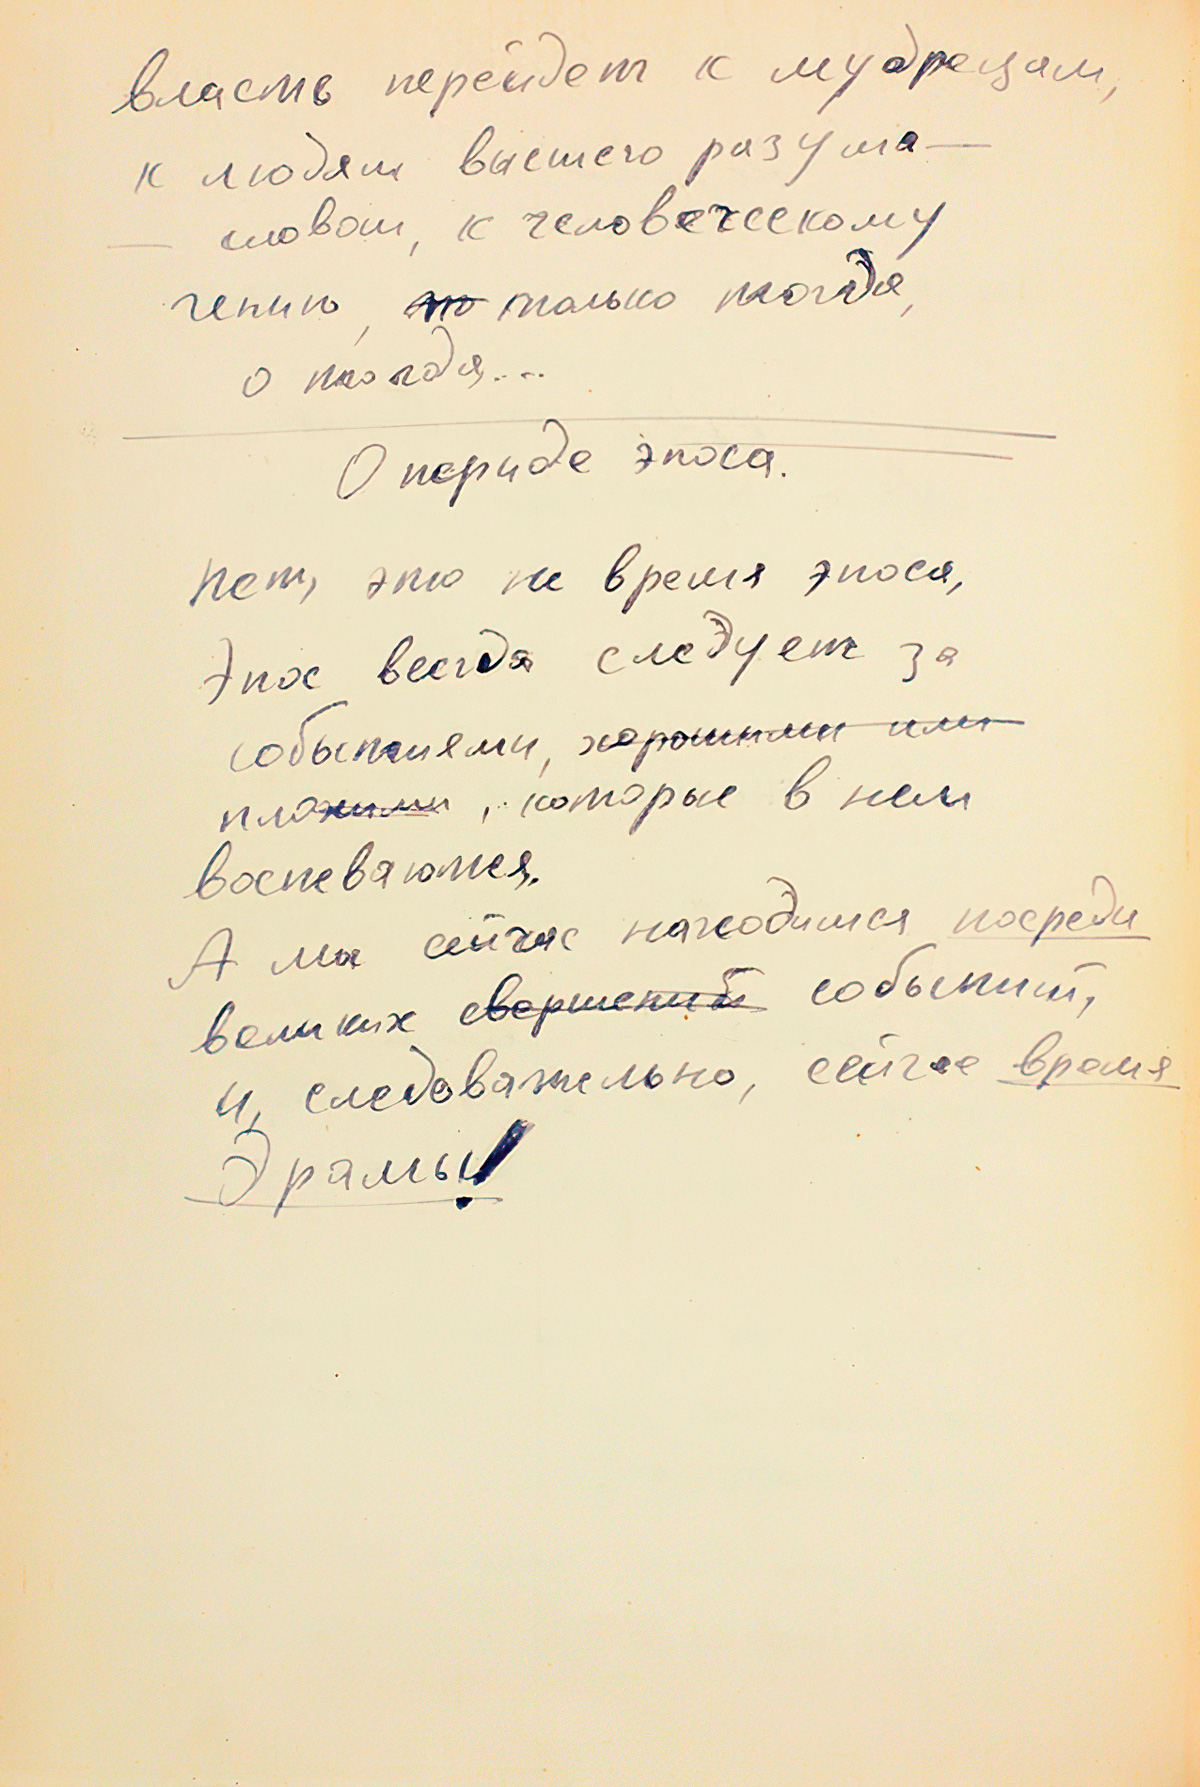 власть перейдет к мудрецам,
к людям высшего разума —
— словом, к человеческому
гению, то только тогда,
о тогда...
О периде эпоса.
Нет, это не время эпоса,
Эпос всегда следует за
событиями, хорошими или
плохими, которые в нем
воспеваются.
А мы сейчас находимся посреди
великих свершений событий,
и, следовательно, сейчас время
Драмы!